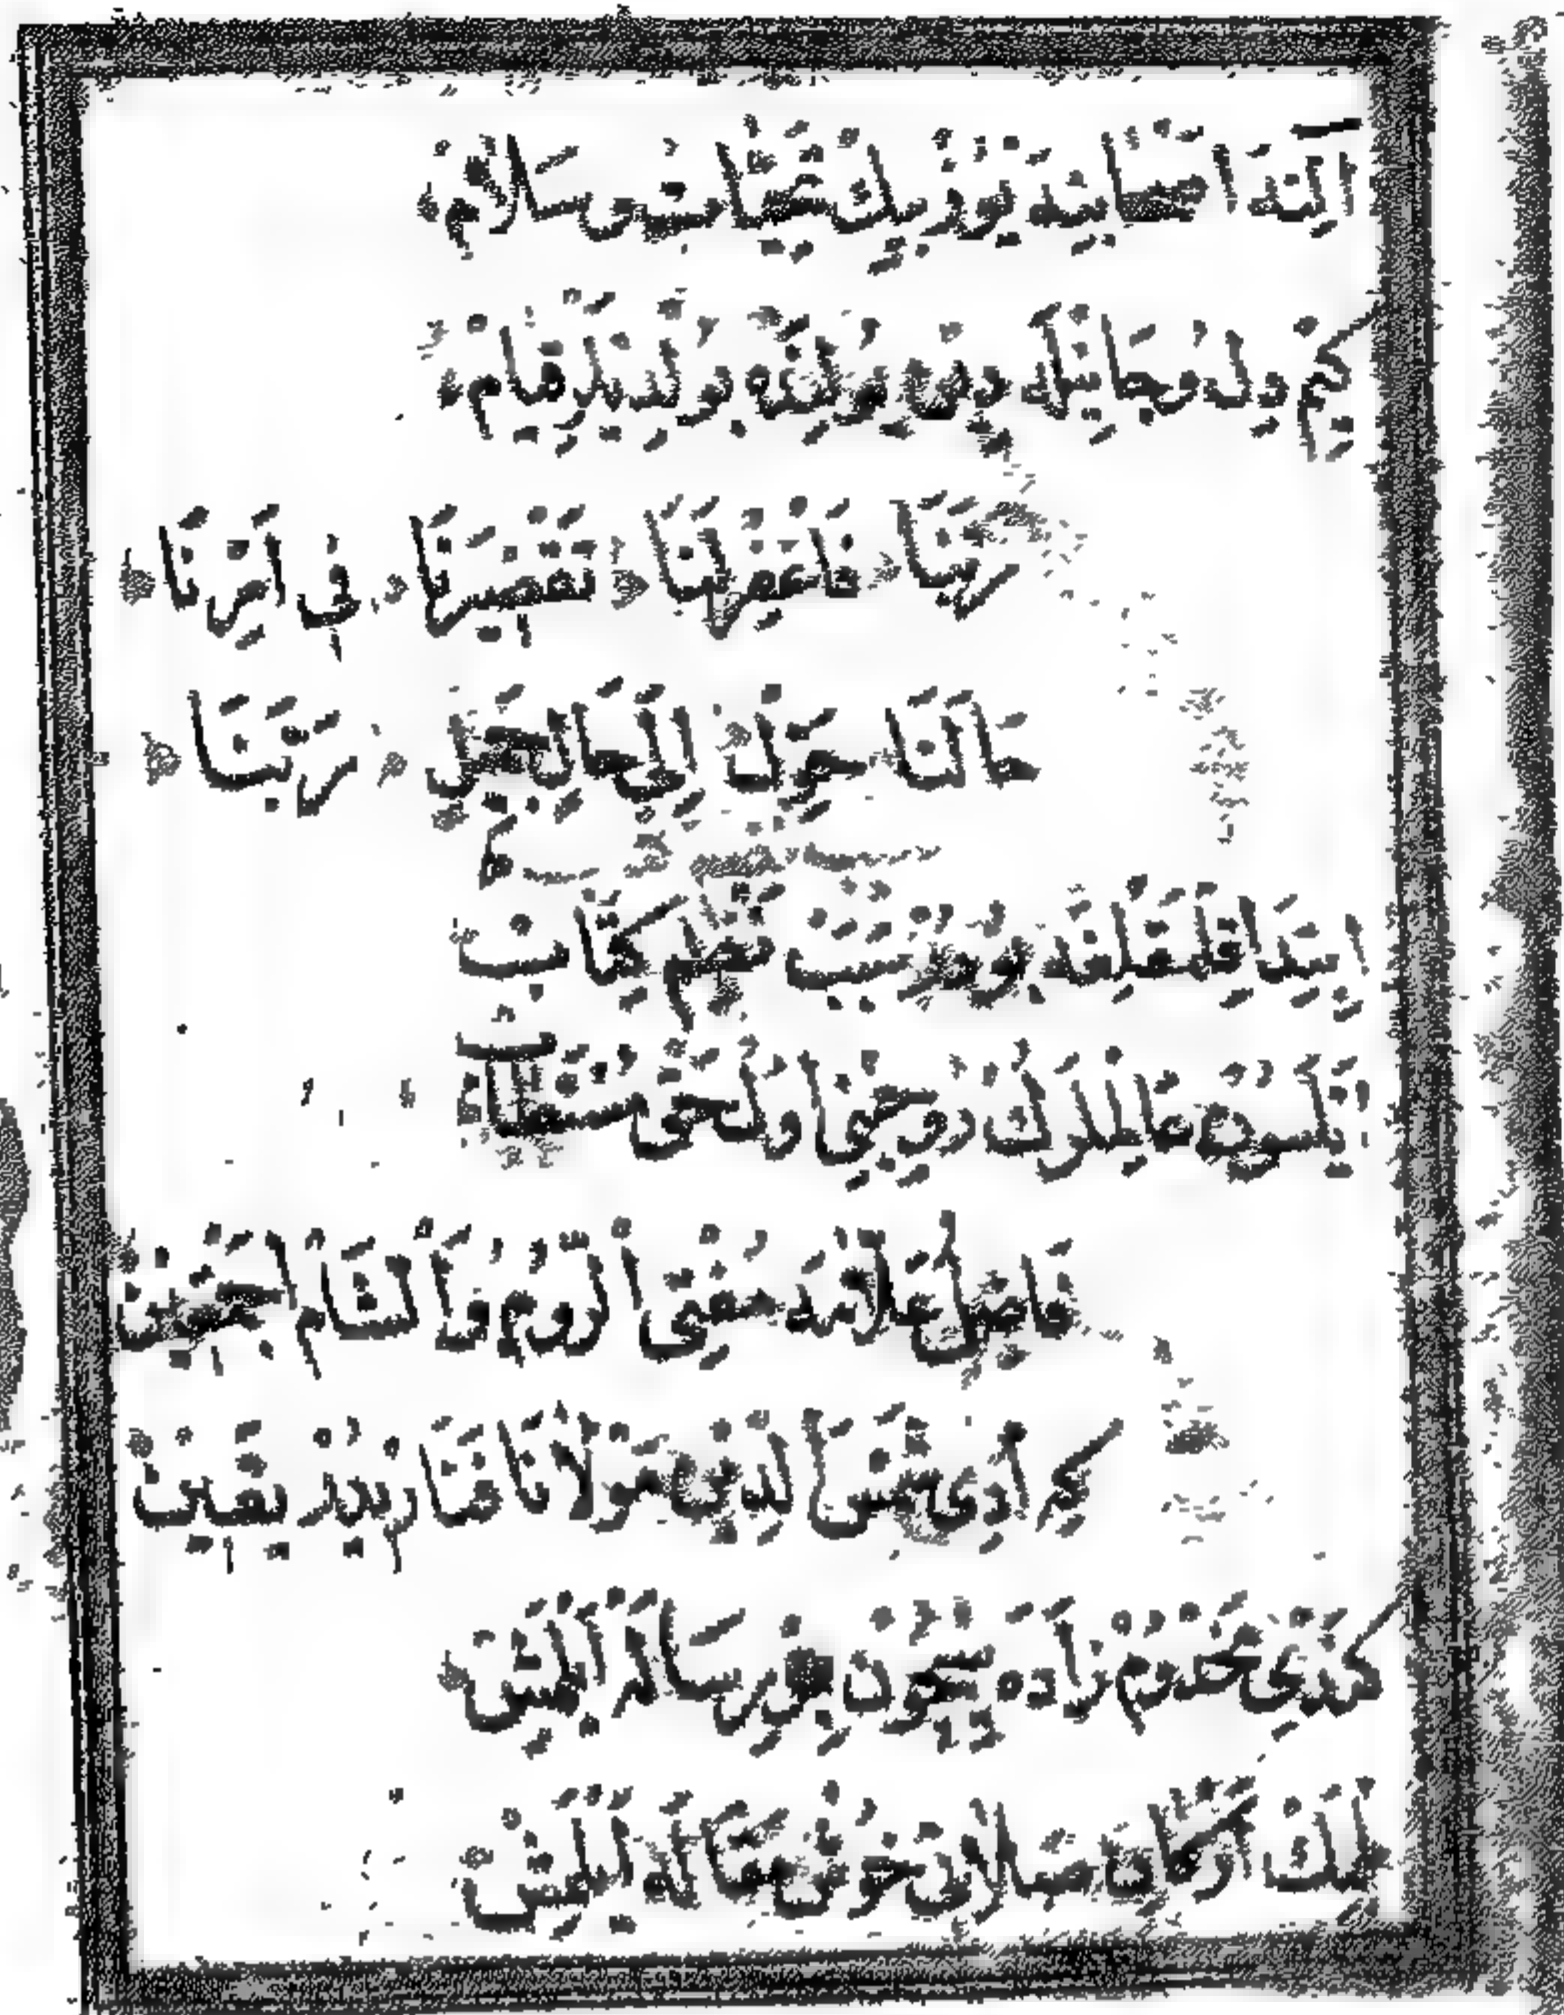 آلِنَه اَصْحَابِنَه يُوزْ بِيكْ تَحِيَّاتْ سَلَامْ
كِيمْ دِلُ وجَانِيلَه دِينْ يُولِنْدَه بُولَدِيلَرْ قِيَامْ
رَبَّنَا فَاغْفِرْلَنَا تَقْصِيرَنَا فِي اَمْرِنَا
حَالَنَا حَوِّلْ اِلَى الْحَالِ الْجَمِيلْ رَبَّنَا
اِبْتَدَا قِلْمَقْلِغَه بُودُرْ سَبَبْ نَظْمِ كِتَابْ
فَاضِلُ عَلَّامَه مُفْتِى اَلرُّومُ وَاَلشَّامْ اَجْمَعِينْ
كِه اَدِى شَمْسَ الدِّينِ مَوْلَانَا فَنَارِيدُرْ يَقِينْ
كَنْدِى مَخْدُومْ زَادَه سِيچُونْ بِرْ رِسَالَه اَيْلَمِشْ
اَرْكَانِ صَلَاتِى خُوشْ مَقَالَه اَيْلَمِشْ